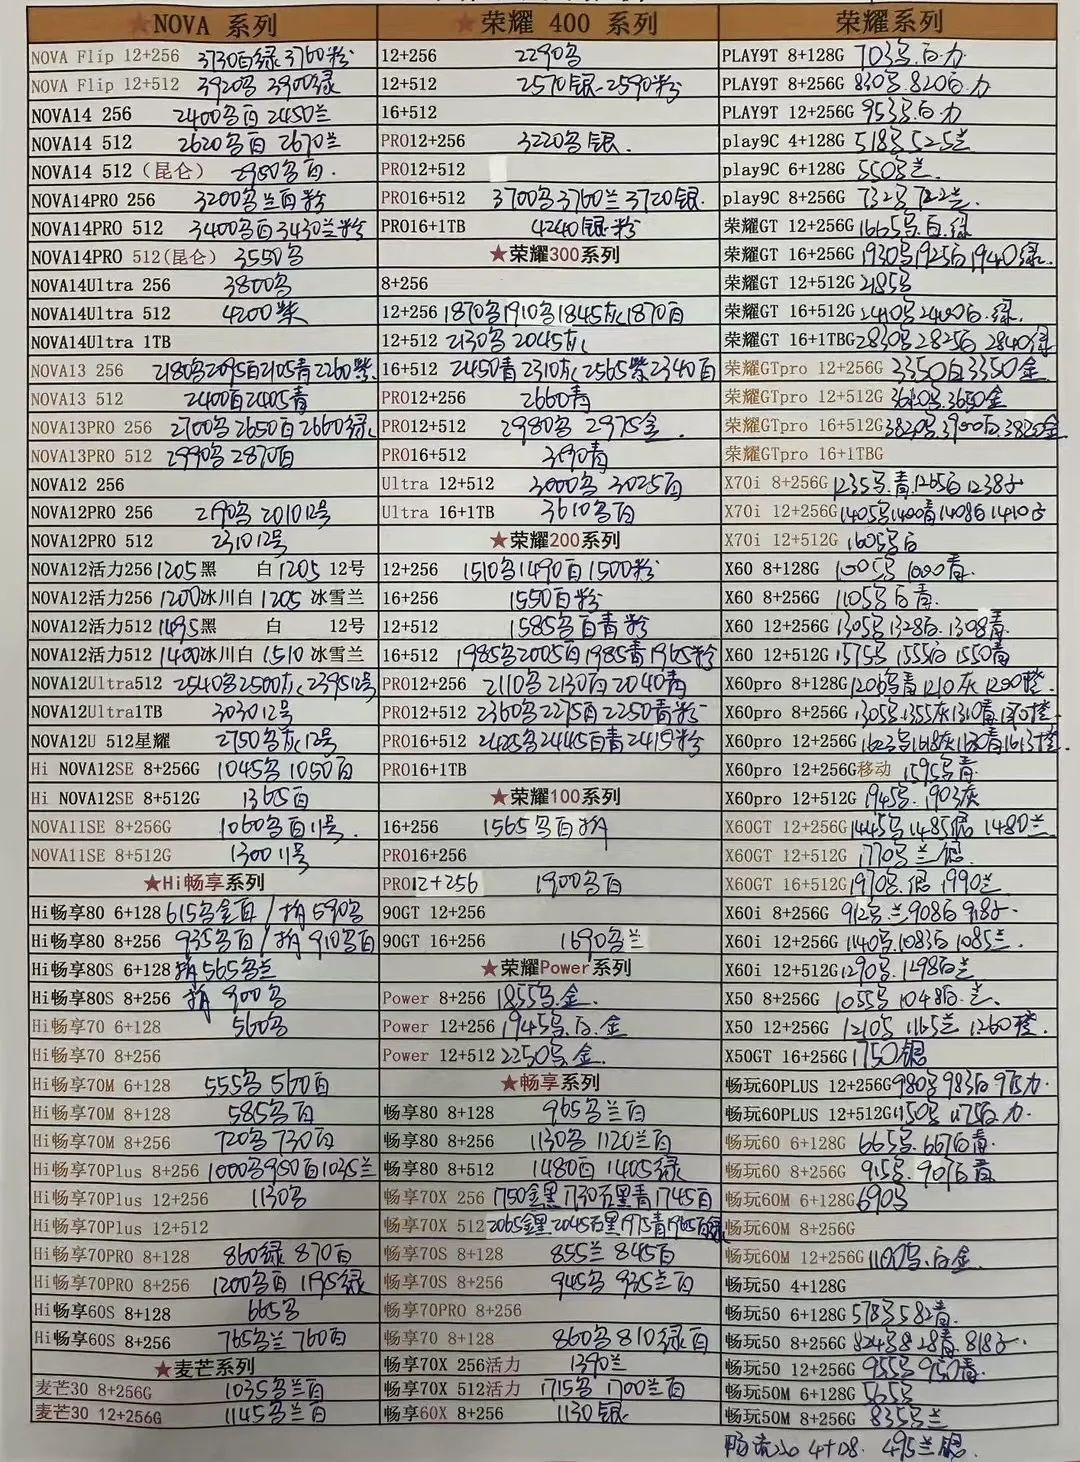 ★NOVA 系列
NOVA Flip 12+256 3730白绿 3760粉
NOVA Flip 12+512 3920名 3900绿
NOVA14 256 2400名白 2450兰
NOVA14 512 2620名白 2670兰
NOVA14 512（昆仑） 2950名白.
NOVA14PRO 256 3200名兰白粉
NOVA14PRO 512 3400名白3430兰粉
NOVA14PRO 512(昆仑) 3550名
NOVA14Ultra 256 3800名
NOVA14Ultra 512 4200紫
NOVA14Ultra 1TB
NOVA13 256 2180名2095白2105青2260紫
NOVA13 512 2400白2405青
NOVA13PRO 256 2700名2650白2660绿
NOVA13PRO 512 2990名 2870白
NOVA12 256
NOVA12PRO 256 2190名 2010 12号
NOVA12PRO 512 2310 12号
NOVA12活力256 1205黑 白1205 12号
NOVA12活力256 1200冰川白 1205 冰雪兰
NOVA12活力512 1495黑 白 12号
NOVA12活力512 1400冰川白 1510 冰雪兰
NOVA12Ultra512 2540名2500灰2395 12号
NOVA12Ultra1TB 3030 12号
NOVA12U 512星耀 2750名灰12号
Hi NOVA12SE 8+256G 1045名 1050白
Hi NOVA12SE 8+512G 1365白
NOVA11SE 8+256G 1060名白11号.
NOVA11SE 8+512G 1300 11号
★Hi畅享系列
Hi畅享80 6+128 615名金白 / 拆590名
Hi畅享80 8+256 935名白 / 拆910名白
Hi畅享80S 6+128 拆565名兰
Hi畅享80S 8+256 拆 900名
Hi畅享70 6+128 560名
Hi畅享70 8+256
Hi畅享70M 6+128 555名 560白
Hi畅享70M 8+128 585名白
Hi畅享70M 8+256 720名 730白
Hi畅享70Plus 8+256 1000名950白1035兰
Hi畅享70Plus 12+256 1130名
Hi畅享70Plus 12+512
Hi畅享70PRO 8+128 860绿 870白
Hi畅享70PRO 8+256 1200名白 1195绿
Hi畅享60S 8+128 665名
Hi畅享60S 8+256 765名兰 760白
★麦芒系列
麦芒30 8+256G 1035名兰白
麦芒30 12+256G 1145名兰白
★荣耀 400 系列
12+256 2290名
12+512 2570银 2590粉
16+512
PRO12+256 3220名银.
PRO12+512
PRO16+512 3700名3760兰3720银.
PRO16+1TB 4240银粉
★荣耀300系列
8+256
12+256 1870名1910名1845灰1870白
12+512 2130名 2045灰
16+512 2450青 2310灰 2565紫2340白
PRO12+256 2660青
PRO12+512 2980名 2975金.
PRO16+512 3190青
Ultra 12+512 3000名 3025白
Ultra 16+1TB 3610名白
★荣耀200系列
12+256 1510名1490白1500粉
16+256 1550白粉
12+512 1585名白青粉
16+512 1985名2005白1985青1965粉
PRO12+256 2110名2130白2040青
PRO12+512 2360名2275白2250青粉
PRO16+512 2425名2445白青2415粉
PRO16+1TB
★荣耀100系列
16+256 1565名白拆
PRO16+256
PRO12+256 1900名白
90GT 12+256
90GT 16+256 1690名兰
★荣耀Power系列
Power 8+256 1855名.金.
Power 12+256 1945名.白.金
Power 12+512 2250名.金.
★畅享系列
畅享80 8+128 965名兰白
畅享80 8+256 1130名 1120兰白
畅享80 8+512 1480白 1405绿
畅享70X 256 1750金黑1730石黑青1745白
畅享70X 512 2065金黑2045石黑1975青1965白绿
畅享70S 8+128 855兰 845白
畅享70S 8+256 945名 935兰白
畅享70PRO 8+256
畅享70 8+128 860名 810绿白
畅享70X 256活力 1390兰
畅享70X 512活力 1715名 1700兰白
畅享60X 8+256 1130银
荣耀系列
PLAY9T 8+128G 703名.白.力
PLAY9T 8+256G 830名.820白.力
PLAY9T 12+256G 953名.白.力
play9C 4+128G 518名525兰
play9C 6+128G 550名兰.
play9C 8+256G 732名722兰.
荣耀GT 12+256G 1665名.白.绿
荣耀GT 16+256G 1930名1925白1940绿.
荣耀GT 12+512G 2185名
荣耀GT 16+512G 2410名2400白.绿.
荣耀GT 16+1TBG 2830名2825白 2840绿
荣耀GTpro 12+256G 3350白3350金
荣耀GTpro 12+512G 3610名.3650金
荣耀GTpro 16+512G 3820名.3900白.3820金
荣耀GTpro 16+1TBG
X70i 8+256G 1235名.青.1265白1238子
X70i 12+256G 1405名1400青1408白1410子
X70i 12+512G 1605名白
X60 8+128G 1005名 1000青.
X60 8+256G 1105名白青.
X60 12+256G 1305名1328白.1308青
X60 12+512G 1575名 1555白1550青
X60pro 8+128G 1206名青1210灰1200橙.
X60pro 8+256G 1305名.1355灰1310青.
X60pro 12+256G 1623名1618灰1630青1613橙
X60pro 12+256G移动 1595名青.
X60pro 12+512G 1945名. 1903灰
X60GT 12+256G 1445名1485银 1480兰
X60GT 12+512G 1770名兰银
X60GT 16+512G 1970名.银 1990兰
X60i 8+256G 912名.兰908白918子.
X60i 12+256G 1140名.1083白1085兰.
X60i 12+512G 1290名.1298白兰
X50 8+256G 1055名 1048白.兰.
X50 12+256G 1210名 1165兰 1260橙.
X50GT 16+256G 1750银
畅玩60PLUS 12+256G 980名983白975力.
畅玩60PLUS 12+512G 1150名 1175白力.
畅玩60 6+128G 665名.667白青
畅玩60 8+256G 915名.907白青
畅玩60M 6+128G 690名
畅玩60M 8+256G
畅玩60M 12+256G 1100名.白金.
畅玩50 4+128G
畅玩50 6+128G 578名582青.
畅玩50 8+256G 824名828青.818子.
畅玩50 12+256G 955名950青.
畅玩50M 6+128G 565名
畅玩50M 8+256G 835名兰
4+128. 495兰银.